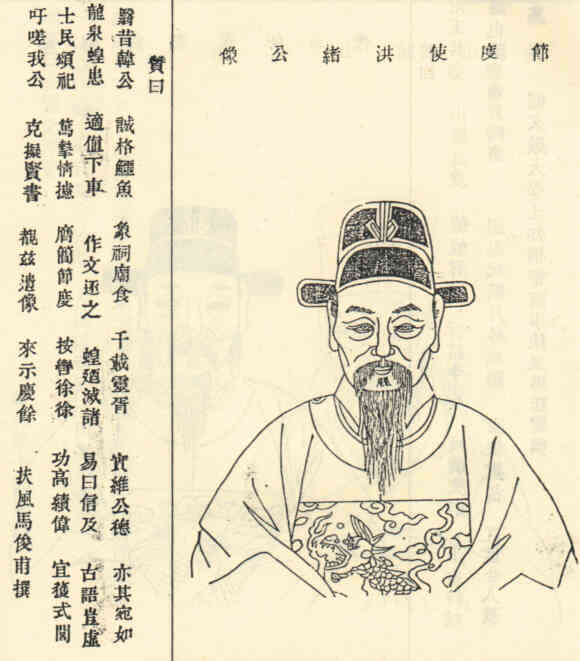 節度使洪緒公像
贊曰
翳昔韓公 誠格鱷魚 象祠廟食 千載靈胥 實維公德 亦其宛如
龍泉蝗患 適值下車 作文逐之 蝗滅諸 易曰信及 古語豈虛
士民頌祀 篤摯情攄 膺簡節度 按轡徐徐 功高績偉 宜獲式閭
吁嗟我公 克振賢書 覩茲遺像 來示慶餘 扶風馬俊甫撰